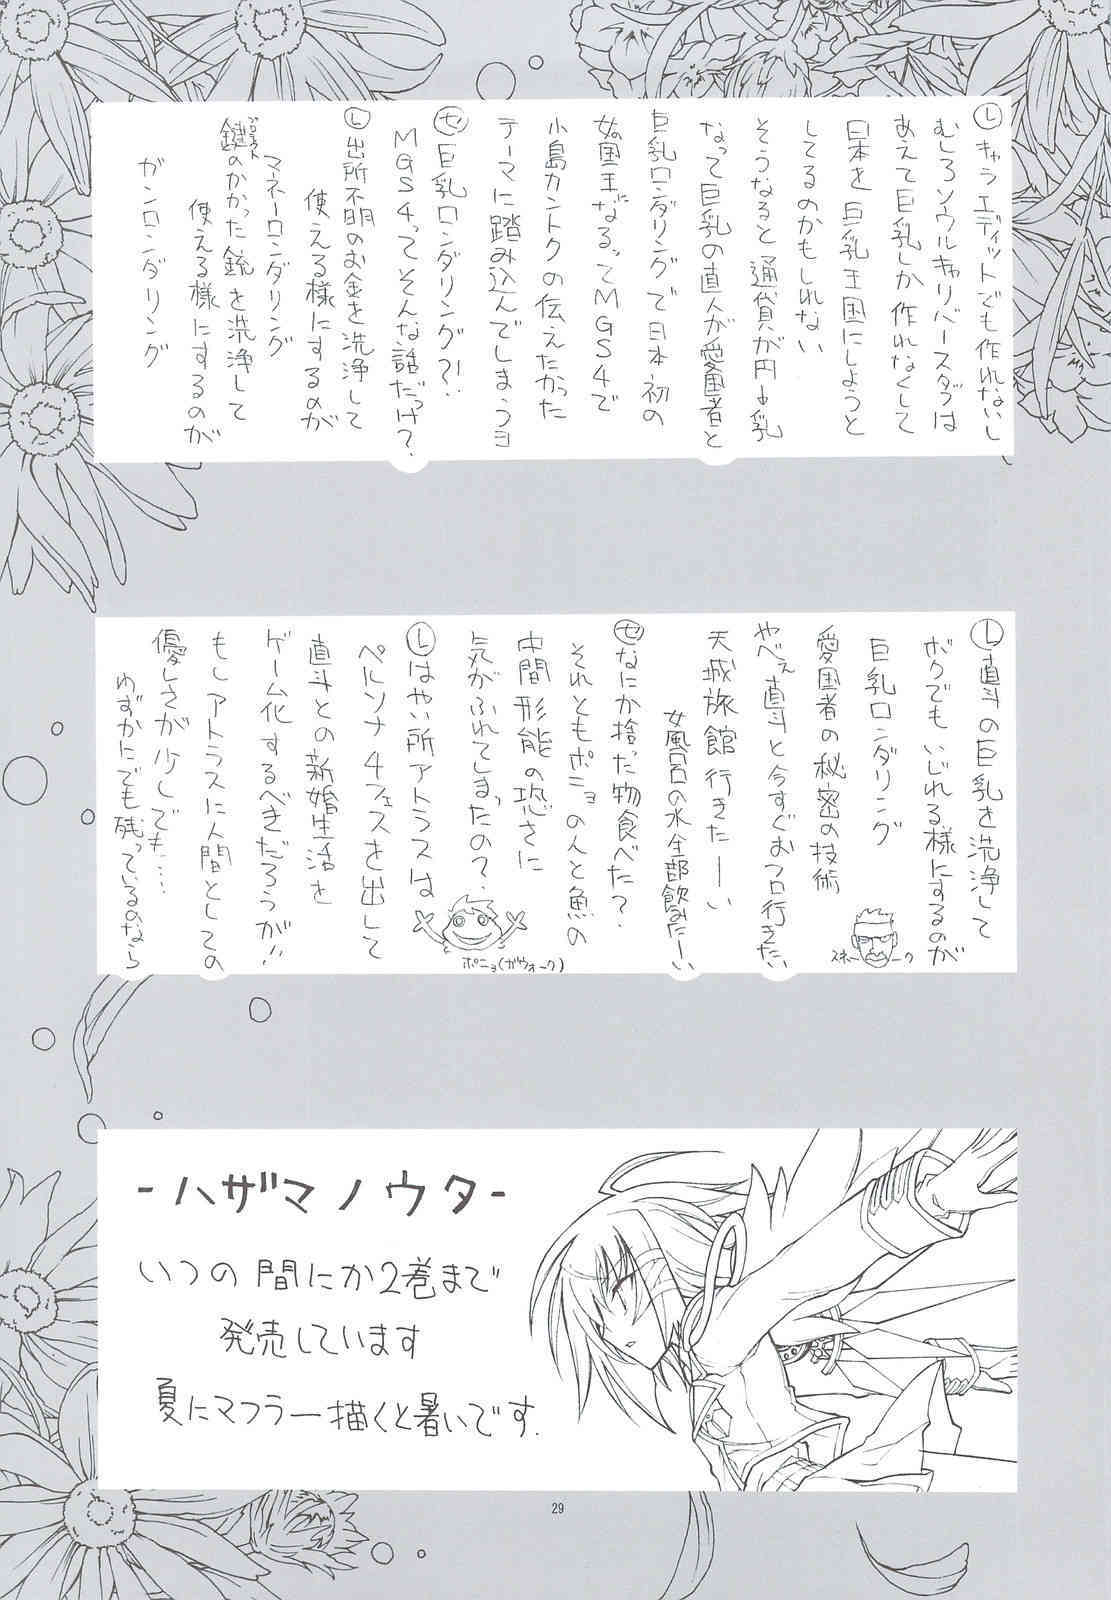 Ⓛキャラエディットでも作れないし
むしろソウルキャリバースタッフは
あえて巨乳しか作れなくして
日本を巨乳王国にしようと
してるのかもしれない
そうなると通貨が円→乳
なって巨乳の直人が愛国者と
巨乳ロンダリングで日本初の
女国王になるってMGS4で
小島カントクの伝えたかった
テーマに踏み込んでしまうヨ
セ巨乳ロンダリング?!
MGS4ってそんな話だっけ?
Ⓛ出所不明のお金を洗浄して
使える様にするのが
マネーロンダリング
鍵のかかった銃を洗浄して
使える様にするのが
ガンロンダリング
Ⓛ直斗の巨乳を洗浄して
ボクでもいじれる様にするのが
巨乳ロンダリング
愛国者の秘密の技術
スネーーク
やべぇ直斗と今すぐおフロ行きたい
天城旅館行きたーーい
女風呂の水全部飲みたーい
セなにか捨った物食べた?
それともポニョの人と魚の
中間形態の恐さに
気がふれてしまったの?
ポニョ(ガウォーク)
Ⓛはやい所アトラスは
ペルソナ4フェスを出して
直斗との新婚生活を
ゲーム化するべきだろうが!!
もしアトラスに人間としての
優しさが少しでも....
わずかにでも残っているのなら
-ハザマノウタ-
いつの間にか2巻まで
発売しています
夏にマフラー描くと暑いです.
29